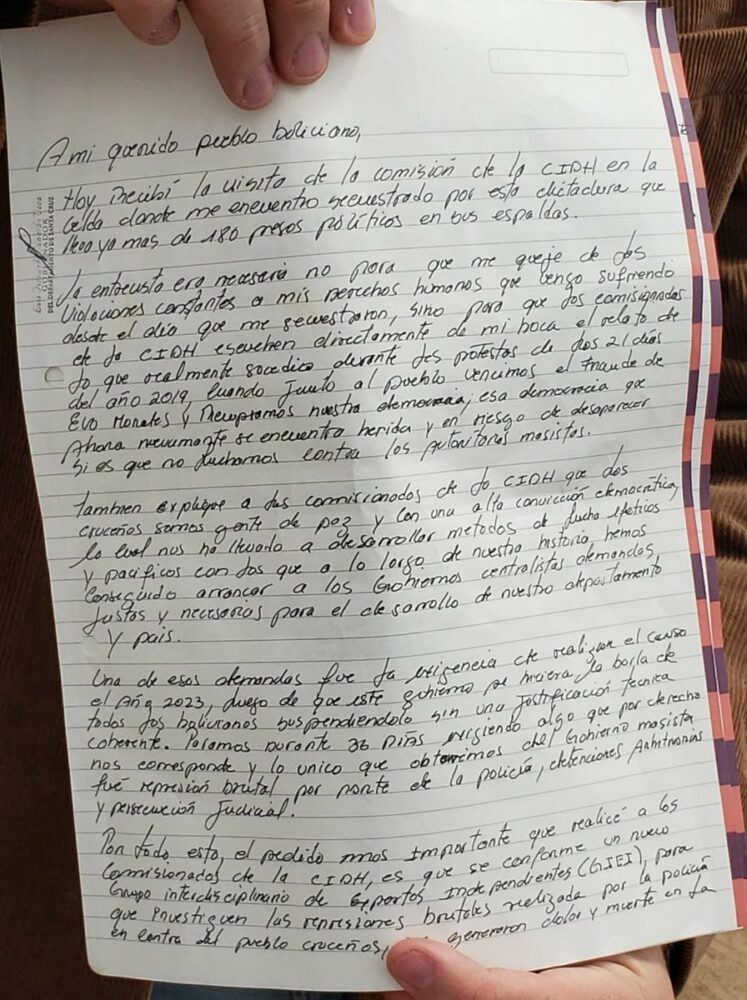 A mi querido pueblo boliciano,
Hoy recibí la visita de la comisión de la CIDH en la
celda donde me encuentro secuestrado por esta dictadura que
lleva ya mas de 180 presos políticos en sus espaldas.
La entrevista era necesaria no para que me queje de las
violaciones constantes a mis derechos humanos que vengo sufriendo
desde el día que me secuestraron, sino para que los comisionados
de la CIDH escuchen directamente de mi boca el relato de
lo que realmente sucedico durante las protestas de los 21 días
del año 2019, cuando junto al pueblo vencimos el fraude de
Evo Morales y recuperamos nuestra democracia; esa democracia que
Ahora nuevamente se encuentra herida y en riesgo de desaparecer
si es que no luchamos contra los autoritarios masistas.
tambien explique a los comisionados de la CIDH que los
cruceños somos gente de paz y con una alta convicción democrática,
lo cual nos ha llevado a desarrollar metodos de lucha efectivos
y pacificos con los que a lo largo de nuestra historia, hemos
conseguido arrancar a los Gobiernos centralistas demandas,
justas y necesarias para el desarrollo de nuestro departamento
y pais.
Una de esas demandas fue la exigencia de realizar el censo
el Año 2023, luego de que este gobierno se hiciera la burla de
todos los bolicianos suspendiendolo sin una justificación tecnica
coherente. Paramos Durante 36 Días exigiendo algo que por derecho
nos corresponde y lo unico que obtuvimos del Gobierno masista
fué represión brutal por parte de la policía, detenciones Arbitrarias
y persecución Judicial.
Por todo esto, el pedido mas Importante que realicé a los
Comisionados de la CIDH, es que se conforme un nuevo
Grupo interdisciplinario de Expertos Independientes (GIEI), para
que Investiguen las represiones brutales realizada por la policía
en contra del pueblo cruceños, generaron dolor y muerte en la
GOBERNADOR
DEL DEPARTAMENTO DE SANTA CRUZ